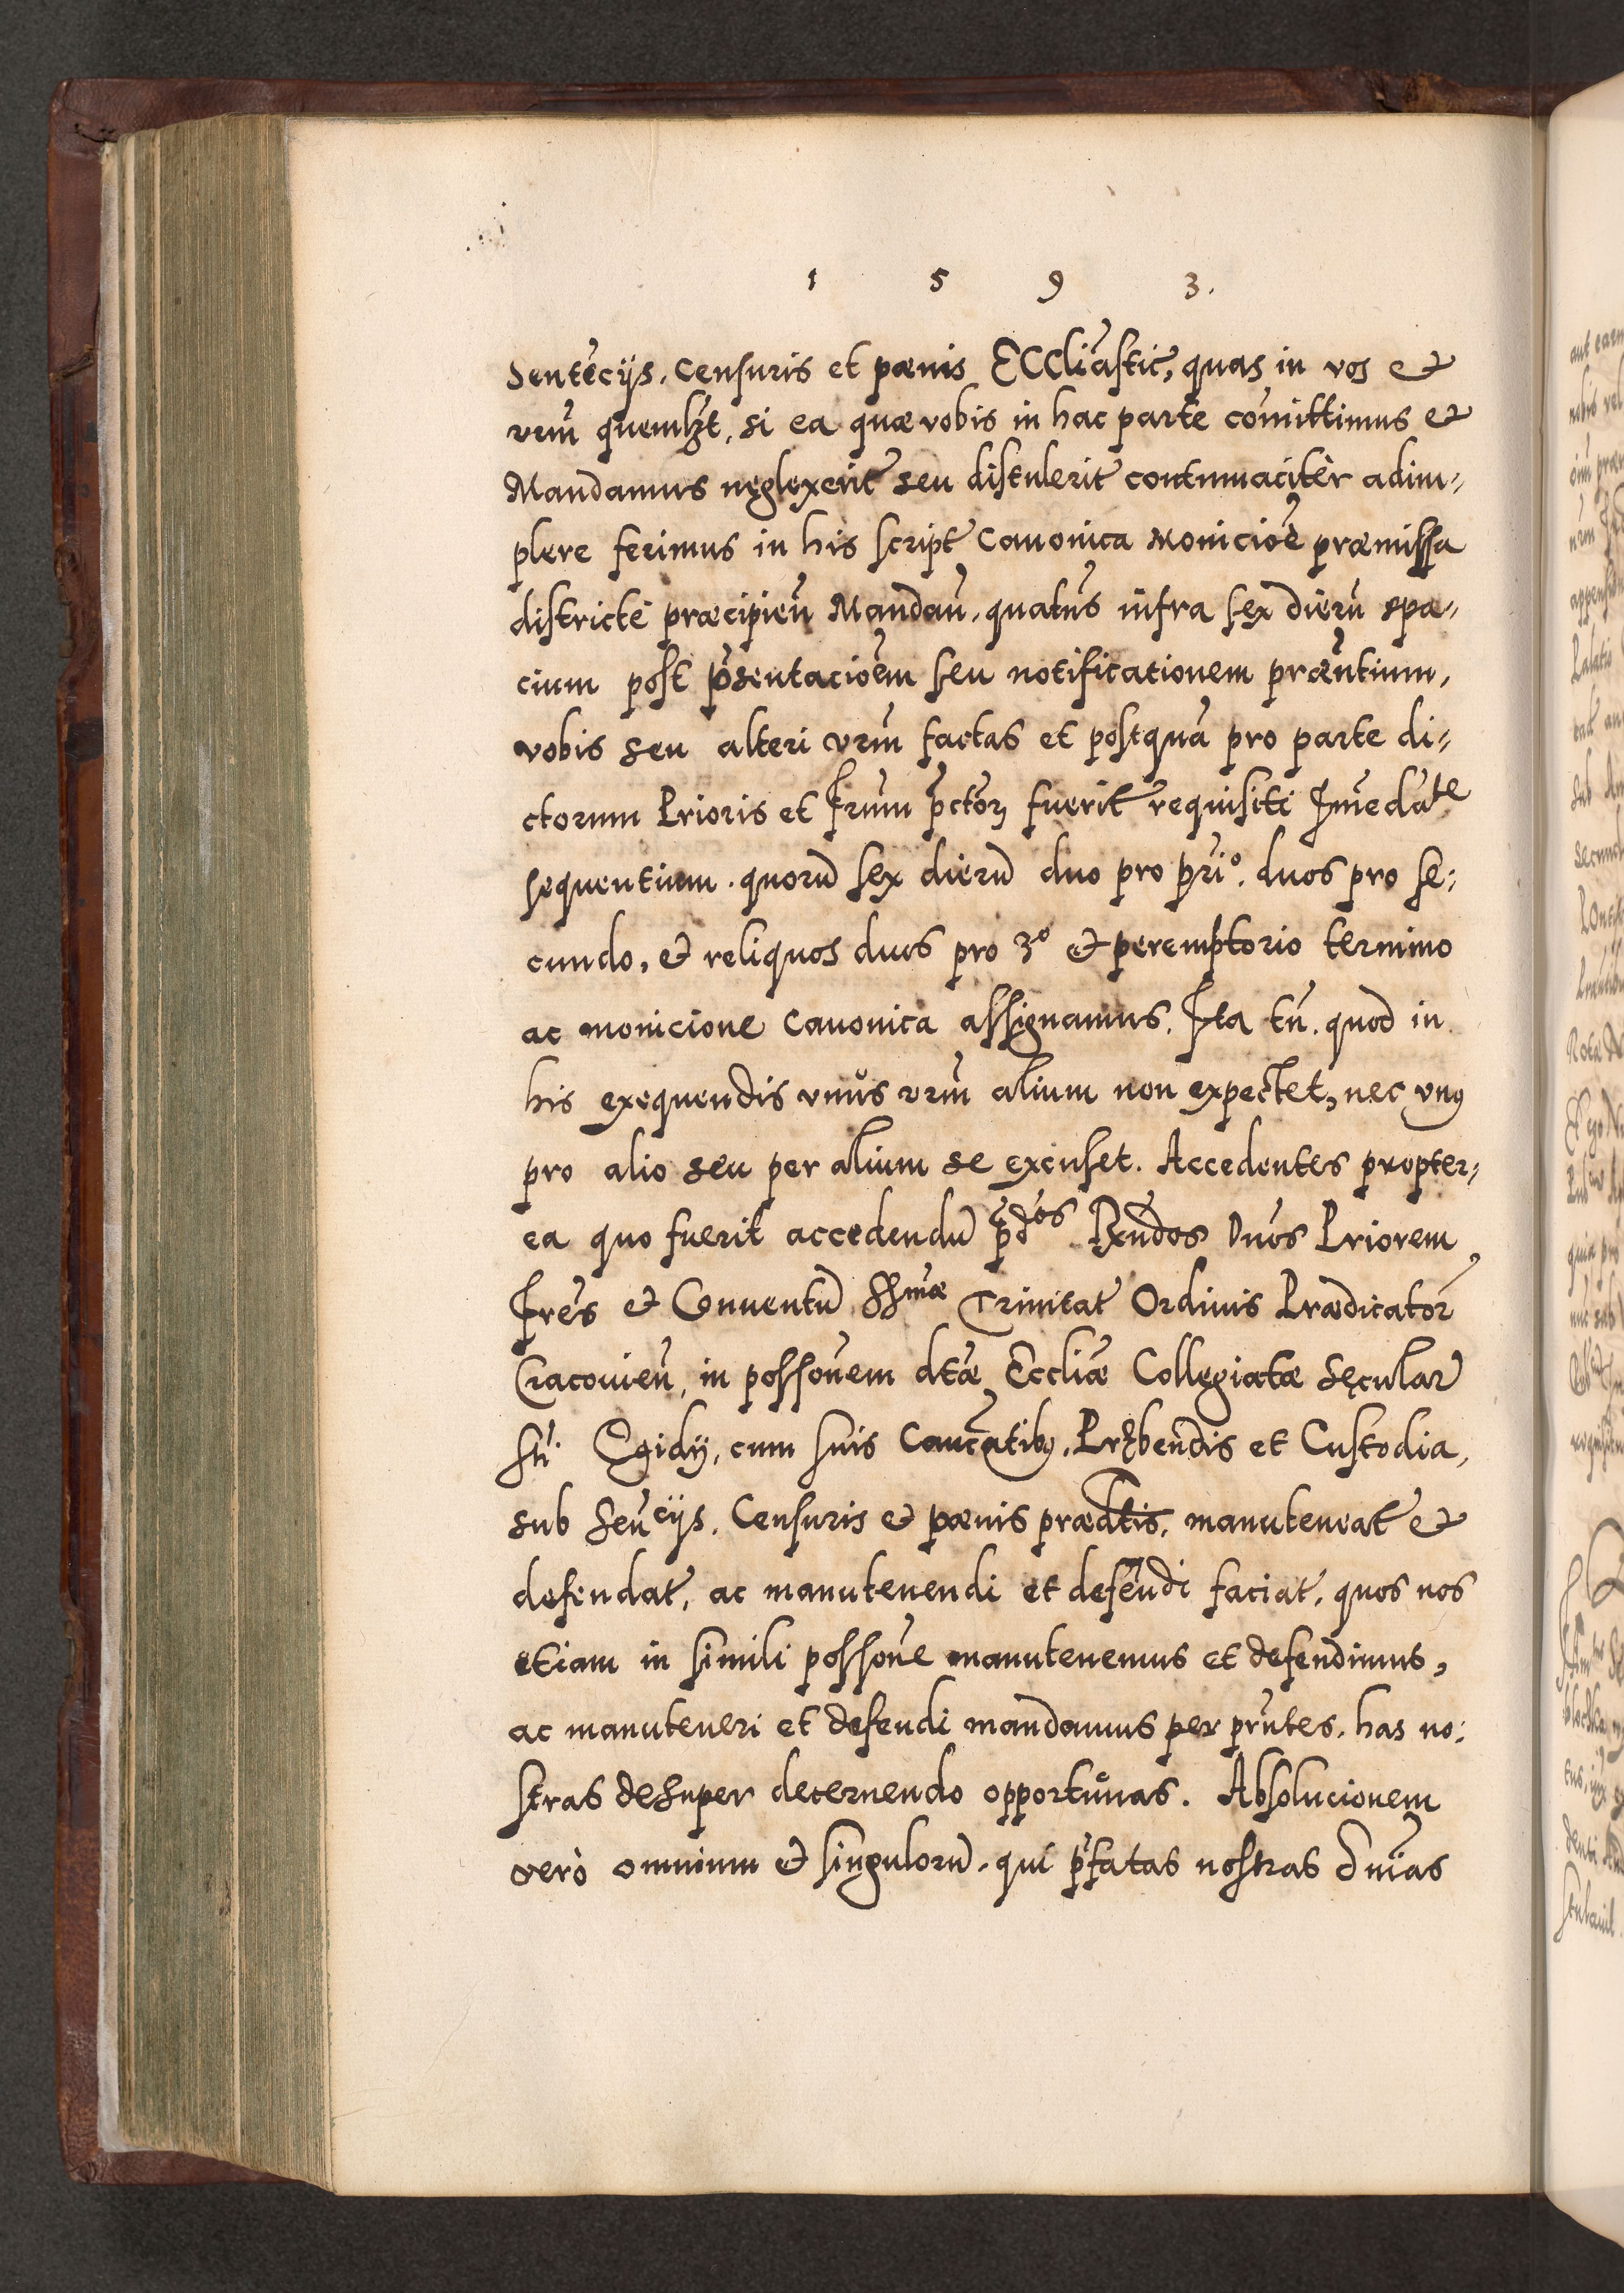 1 5 9 3.
Sentēcijs, Censuris et pœnis ECCliasticꝭ, quas in vos et
vrm̄ quemlꝫt, si ea quæ vobis in hac parte com̄ittimus et
Mandamus neglexerit seu distulerit contumacitèr adim⸗
plere ferimus in his script Canonica Monicioē præmissa
districtè præcipien̄ Mandan̄, quatn̄s infra sex dierū spa⸗
cium post p̄sentacioēm seu notificationem præn̄tium,
vobis seu alteri vrm̄ factas et postquā pro parte di⸗
ctorum Prioris et Frum̄ p̄ctorꝝ fuerit requisiti Im̄ediate
sequentium. quorū sex dierū duo pro pri⁰. duos pro se⸗
cundo, et reliquos duos pro 3⁰ et peremptorio termino
ac monicione Canonica assignamus. Ita tn̄. quod in
his exequendis vnus vrm̄ alium non expectet, nec vnꝰ
pro alio seu per alium se excuset. Accedentes propter⸗
ea quo fuerit accedendū p̄dos Rn̄dos Dn̄os Priorem
Fres̄ et Conuentū SSmæ Trinitat Ordinis Prædicator
Cracouien̄, in possonem̄ dtæ Eccliæ Collegiatæ Sęcular
Sti Egidij, cum suis Can̄catibꝰ, Præbendis et Custodia,
sub Sen̄cijs, Censuris et pœnis prædtis, manuteneat et
defendat, ac manutenendi et defēndi faciat, quos nos
etiam in simili possone̅ manutenemus et defendimus,
ac manuteneri et defendi mandamus per prn̄tes. has no⸗
stras desuper decernendo opportunas. Absolucionem
verò omnium et singulorū, qui p̄fatas nostras Sn̄ias